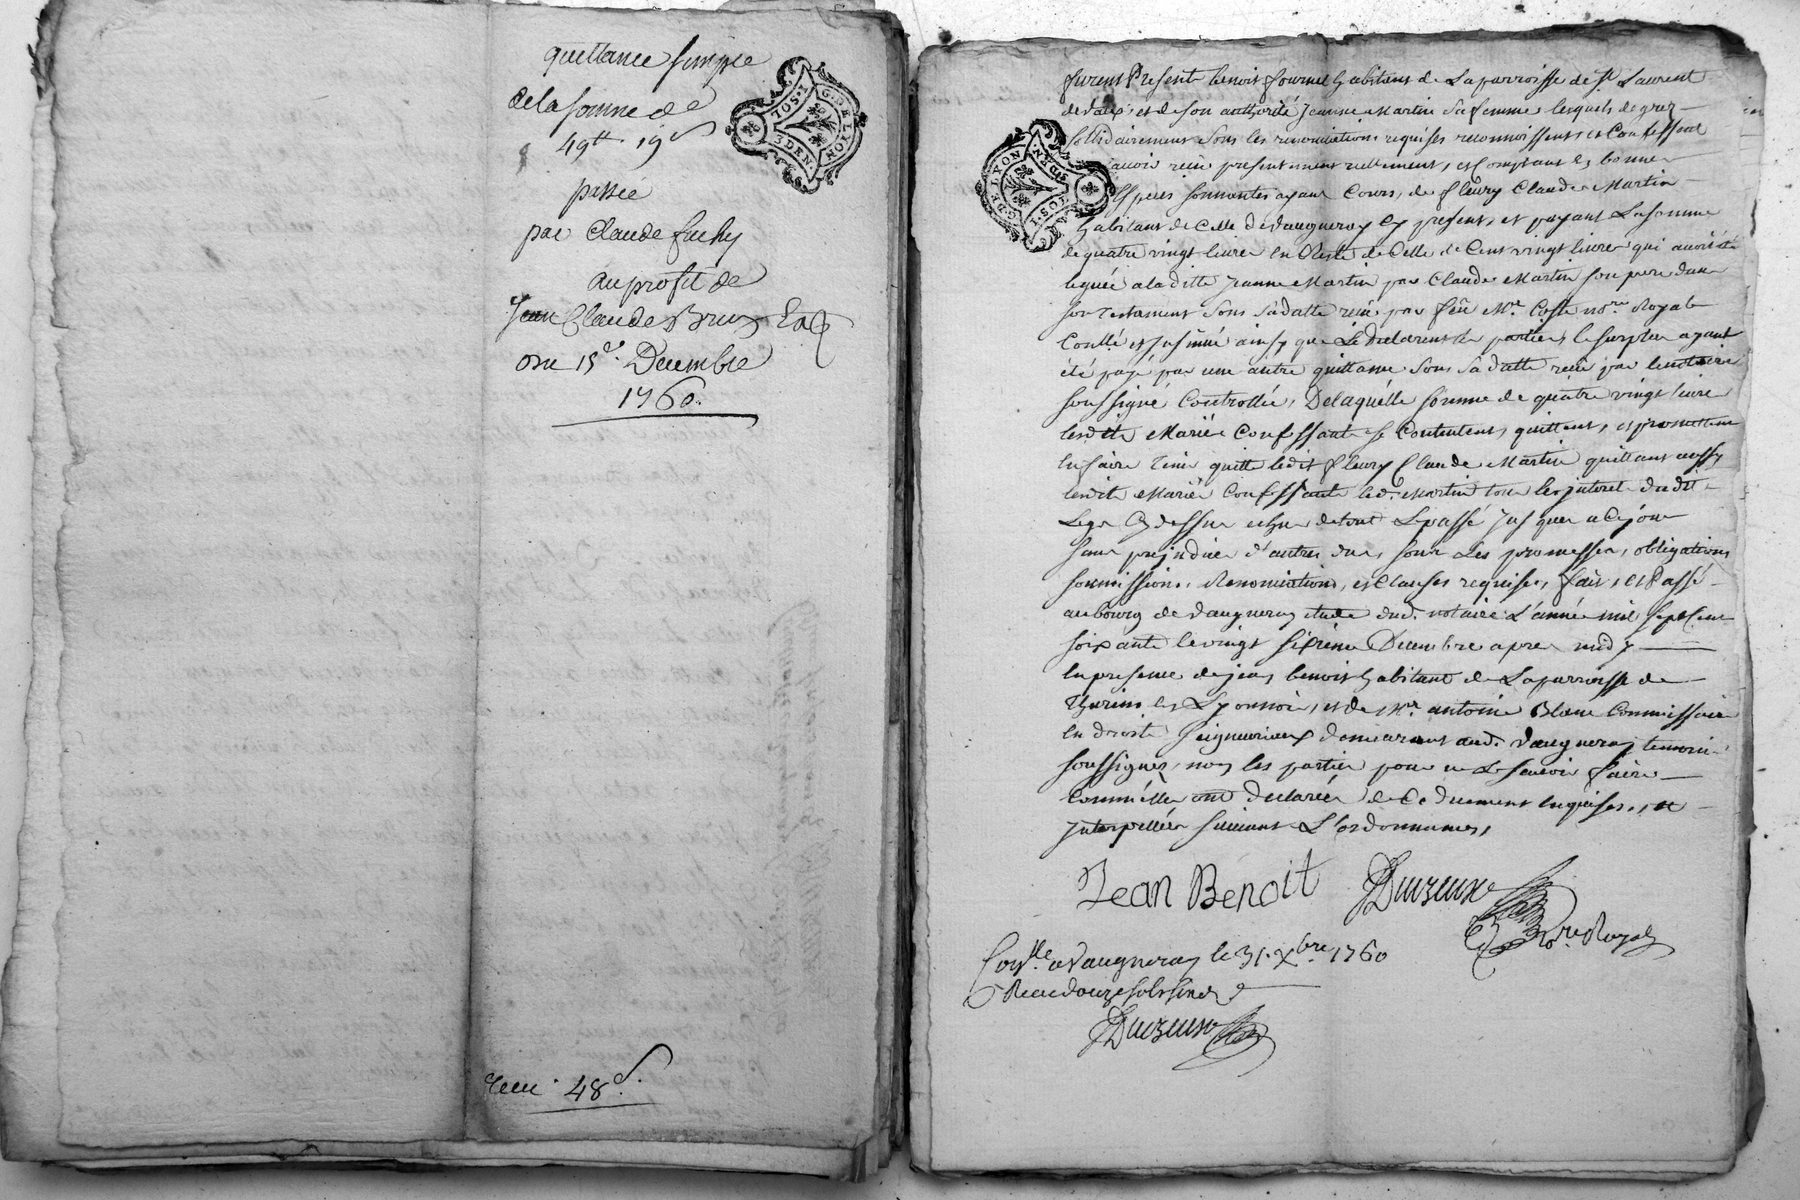 quittance simple
de la somme de
49tt 19s
passée
par Claude
au profit de
Jean Claude
du 15e. Decembre
1760.
G. DE LYON
1. SOL.
3 DEN.
Receu 48s.
furent Presents benoit fournel habitant de La parroisse de st. Laurent
de vaux, et de son authorité jeanne Martin sa femme lesquels de grez
sollidairement sous les renonciations requises reconnoissent et Confessent
avoir reçu presentement reellement, et Comptant en bonnes
Especes sonnantes ayant Cours, de fleury Claude Martin
habitant de Celle de vaugneray cy present, et payant La somme
de quatre vingt livres en Reste de Celle de Cent vingt livres qui avoit été
leguée a la ditte jeanne Martin par Claude Martin son pere dans
son testament sous sa datte reçu par feu Me. Coste nore. Royal
Conllé et jnsinué ainsy que Le declarent les parties le surplus ayant
été payé par une autre quittance sous sa datte reçue par le notaire
soussigné Controllée, De laquelle somme de quatre vingt livres
lesdits Mariés Confessants se Contentent, quittent, et promettent
en faire tenir quitte ledit fleury Claude Martin quittant aussy
lesdits Mariés Confessants led. Martin tous les jnterets dudit
Legs Cy dessus echus de tout Le passé jusques a Ce jour
sans prejudice d'autres dus, sous Les promesses, obligations
soumissions, Renonciations, et Clauses requises, fait, et Passé
au bourg de vaugneray etude dud. notaire L'année mil sept Cent
soixante le vingt sixième Decembre apres midy
en presence de jean benoit habitant de La parroisse de
Thurins en Lyonnois, et de Mr. antoine Blanc Commissaire
en droits seigneuriaux demeurant aud. vaugneray temoins
soussignés, non les parties pour ne Le scavoir faire
Comm'elles ont declarées de Ce duement enquises, et
jnterpellées suivant L'ordonnance,
G. DE LYON
1. SOL.
3 DEN.
Jean Benoit
Nore. Royal
Conlle. a vaugneray le 31. Xbre 1760
Receu douze sols six d